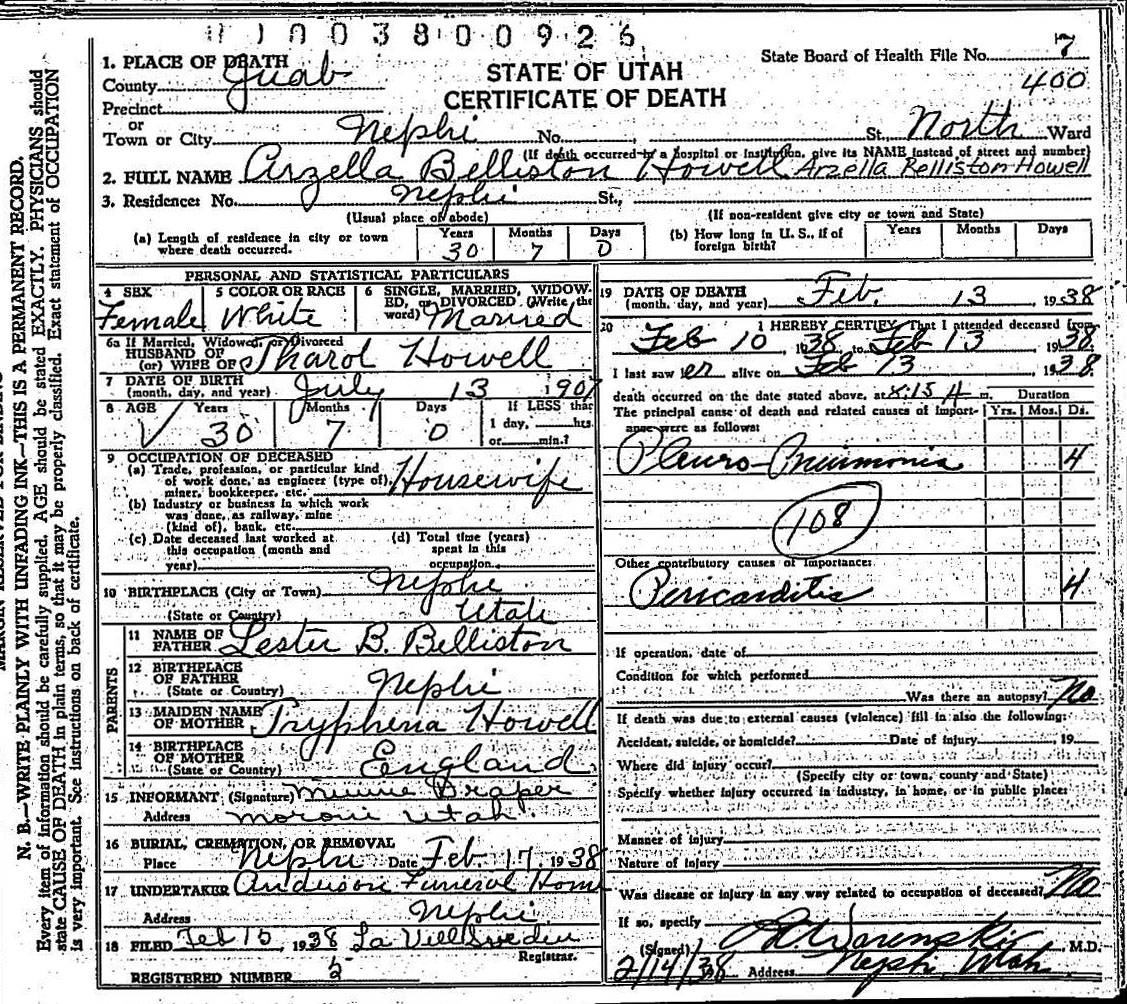 100380 0926
State Board of Health File No. 7
400
STATE OF UTAH
CERTIFICATE OF DEATH
1. PLACE OF DEATH
County Juab
Precinct
or
Town or City Nephi No. St. North Ward
(If death occurred in a hospital or institution, give its NAME instead of street and number)
2. FULL NAME Arzella Belliston Howell Arzella Belliston Howell
3. Residence: No. Nephi St.,
(Usual place of abode) (If non-resident give city or town and State)
(a) Length of residence in city or town where death occurred. Years 30 Months 7 Days 0
(b) How long in U. S., if of foreign birth? Years Months Days
PERSONAL AND STATISTICAL PARTICULARS
4 SEX Female
5 COLOR OR RACE White
6 SINGLE, MARRIED, WIDOWED, or DIVORCED (Write the word) Married
6a If Married, Widowed, or Divorced
HUSBAND OF
(or) WIFE OF Tharol Howell
7 DATE OF BIRTH
(month, day, and year) July 13 1907
8 AGE Years 30 Months 7 Days 0 If LESS than 1 day, hrs. or min.?
9 OCCUPATION OF DECEASED
(a) Trade, profession, or particular kind
of work done, as engineer (type of),
miner, bookkeeper, etc. Housewife
(b) Industry or business in which work
was done, as railway, mine
(kind of), bank, etc.
(c) Date deceased last worked at
this occupation (month and
year)
(d) Total time (years)
spent in this
occupation
10 BIRTHPLACE (City or Town) Nephi
(State or Country) Utah
PARENTS
11 NAME OF
FATHER Lester B. Belliston
12 BIRTHPLACE
OF FATHER
(State or Country) Nephi
13 MAIDEN NAME
OF MOTHER Tryphena Howell
14 BIRTHPLACE
OF MOTHER
(State or Country) England
15 INFORMANT (Signature) Minnie Draper
Address Moroni Utah
16 BURIAL, CREMATION, OR REMOVAL
Place Nephi Date Feb. 17, 1938
17 UNDERTAKER Anderson Funeral Home
Address Nephi
18 FILED Feb 15, 1938
Registrar.
REGISTERED NUMBER 5
19 DATE OF DEATH
(month, day, and year) Feb. 13 1938
20 I HEREBY CERTIFY, That I attended deceased from
Feb 10 1938 to Feb 13 1938
I last saw er alive on Feb 13 1938
death occurred on the date stated above, at 8:15 A m.
The principal cause of death and related causes of importance were as follows:
Duration
Yrs. Mos. Ds.
Pleuro-Pneumonia 4
108
Other contributory causes of importance:
Pericarditis 4
If operation, date of
Condition for which performed
Was there an autopsy? No
If death was due to external causes (violence) fill in also the following:
Accident, suicide, or homicide? Date of injury 19
Where did injury occur?
(Specify city or town, county and State)
Specify whether injury occurred in industry, in home, or in public place:
Manner of injury
Nature of injury
Was disease or injury in any way related to occupation of deceased? No
If so, specify
(Signed) M.D.
2/14/38 Address Nephi, Utah
N. B.—WRITE PLAINLY WITH UNFADING INK—THIS IS A PERMANENT RECORD.
Every item of information should be carefully supplied. AGE should be stated EXACTLY. PHYSICIANS should
state CAUSE OF DEATH in plain terms, so that it may be properly classified. Exact statement of OCCUPATION
is very important. See instructions on back of certificate.